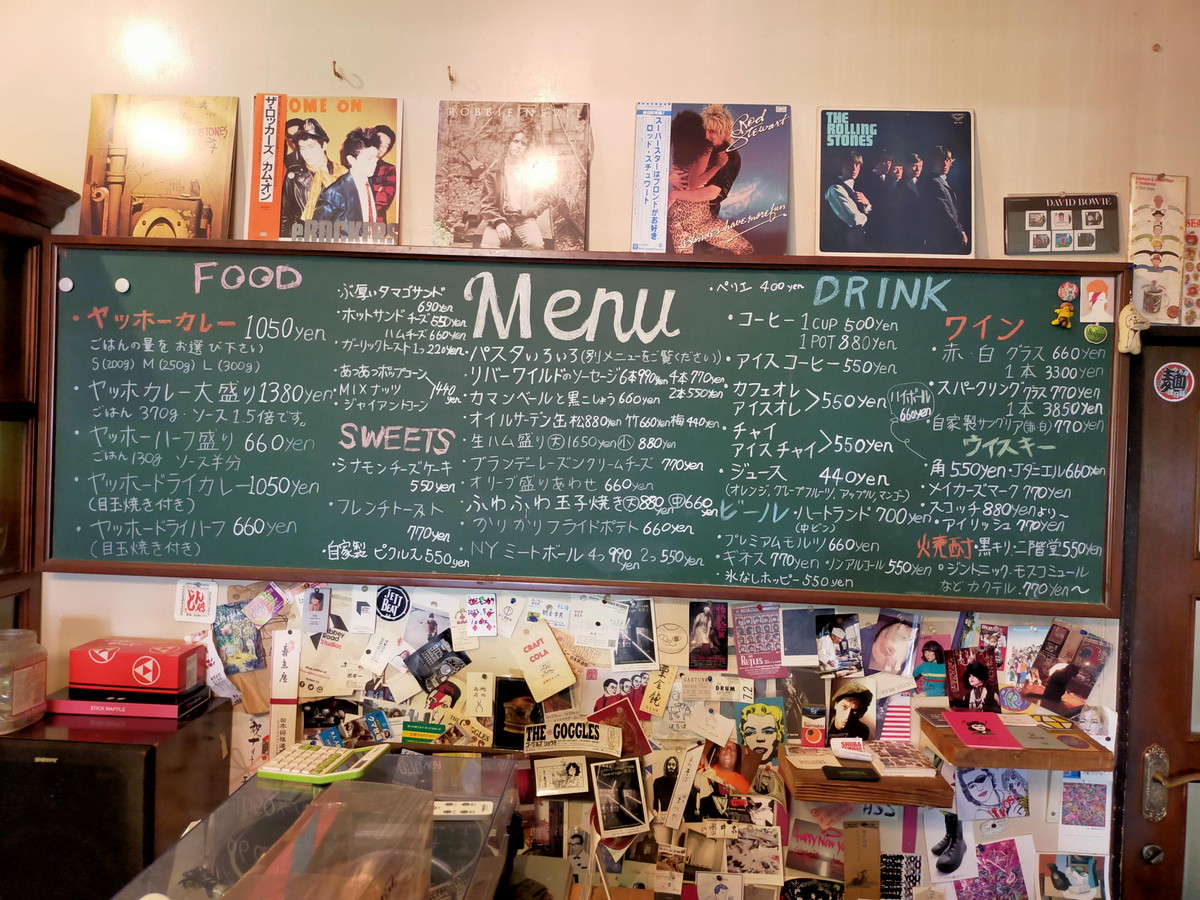 STONES
ザ・ロッカーズ カム・オン
OME ON
eROCKERS
ROBBIE NEVIL
スーパースターはブロンドがお好き
ロッド・スチュワート
Rod Stewart
Blondes have more fun
THE ROLLING STONES
DAVID BOWIE
FOOD
・ヤッホーカレー 1050yen
ごはんの量をお選び下さい
S(200g) M(250g) L(300g)
・ヤッホカレー大盛り1380yen
ごはん 370g・ソース1.5倍です。
・ヤッホーハーフ盛り 660yen
ごはん130g ソース半分
・ヤッホードライカレー1050yen
(目玉焼き付き)
・ヤッホードライハーフ 660yen
(目玉焼き付き)
・ぶ厚いタマゴサンド
690yen
・ホットサンドチーズ550yen
ハムチーズ660yen
・ガーリックトースト1っ220yen
・あつあつポップコーン
・MIXナッツ
・ジャイアントコーン
440yen
SWEETS
・シナモンチーズケーキ
550yen
・フレンチトースト
770yen
・自家製 ピクルス550yen
Menu
・パスタいろいろ(別メニューをご覧ください)
・リバーワイルドのソーセージ6本990yen 4本770yen
2本550yen
・カマンベールと黒こしょう660yen
・オイルサーデン缶 松880yen 竹660yen 梅440yen
・生ハム盛り(大)1650yen(小)880yen
・ブランデーレーズンクリームチーズ 770yen
・オリーブ盛りあわせ 660yen
・ふわふわ玉子焼き(大)880yen(中)660yen
・かりかりフライドポテト 660yen
・NYミートボール 4っ990yen 2っ550yen
・ペリエ 400yen
DRINK
・コーヒー 1CUP 500yen
1POT 880yen
・アイスコーヒー550yen
・カフェオレ
アイスオレ >550yen
・チャイ
アイスチャイ >550yen
・ジュース 440yen
(オレンジ、グレープフルーツ、アップル、マンゴー)
ビール ・ハートランド 700yen
(中ビン)
・プレミアムモルツ660yen
・ギネス770yen ・ノンアルコール550yen
・氷なしホッピー550yen
ハイボール
660yen
ワイン
・赤・白 グラス 660yen
1本 3300yen
・スパークリング グラス770yen
1本 3850yen
・自家製サングリア(赤・白)770yen
ウイスキー
・角 550yen・J.ダニエル660yen
・メイカーズマーク 770yen
・スコッチ880yenより〜
・アイリッシュ 770yen
焼酎 ・黒キリ・二階堂550yen
・ジントニック、モスコミュール
などカクテル・770yen〜
麺
STICK WAFFLE
Abbey Road Studios
JETT BEAT
CRAFT COLA
THE GOGGLES
Rejus
DRUM